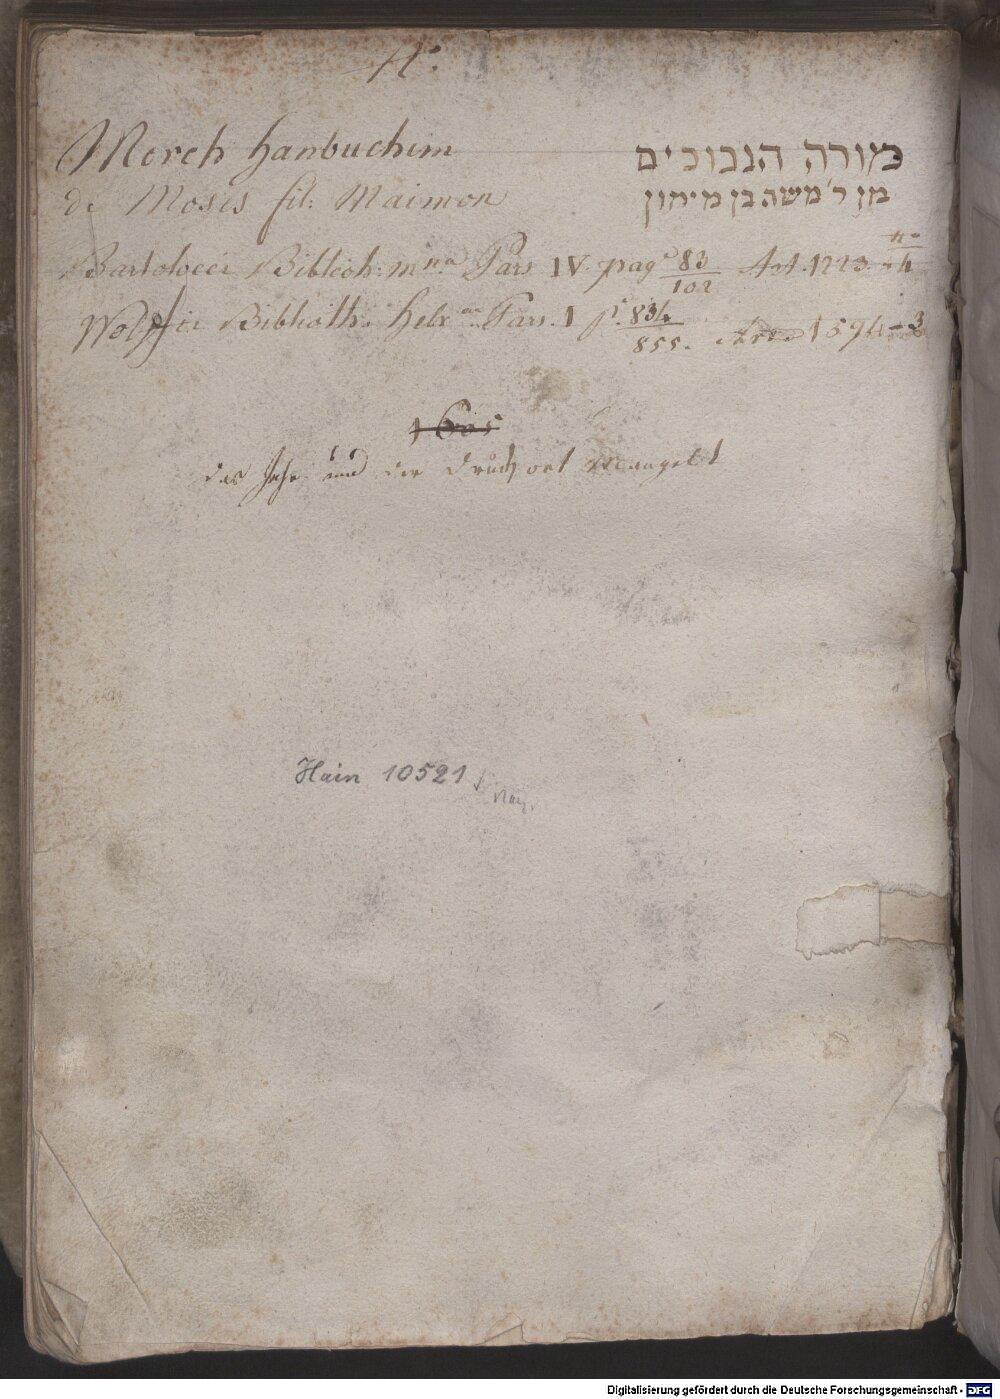 4°
Moreh hanbuchim
מורה הנבוכים
de Mosis fil: Maimon
מן ר' משה בן מימון
Bartolocci Biblioth: mna Pars IV. pag. 83/102 Art. 1223.
Wolfii Biblioth. hebr. Pars. I p. 834/855. 1594-3
1605
das Jahr und der Druckort mangelt
Hain 10521
Digitalisierung gefördert durch die Deutsche Forschungsgemeinschaft - DFG